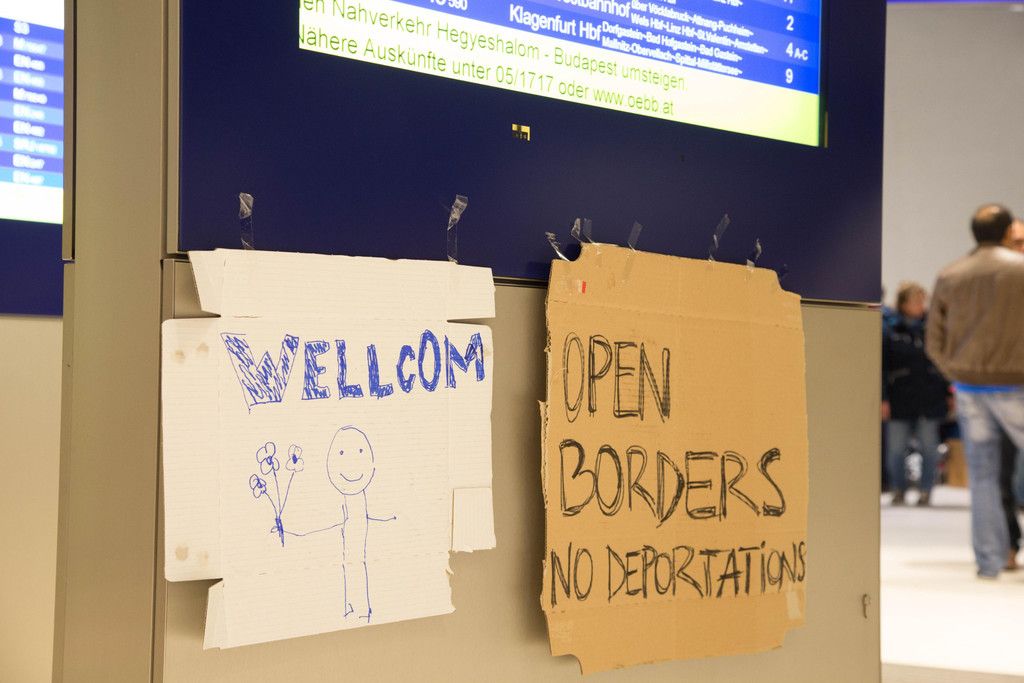 TO 590
Klagenfurt Hbf
über Vöcklabruck-Attnang-Puchheim-
Wels Hbf-Linz Hbf-St.Valentin-Amstetten-
Dorfgastein-Bad Hofgastein-Bad Gastein-
Mallnitz-Obervellach-Spittal-Millstättersee-
2
4 A-C
9
en Nahverkehr Hegyeshalom - Budapest umsteigen.
Nähere Auskünfte unter 05/1717 oder www.oebb.at
WELLCOM
OPEN
BORDERS
NO DEPORTATIONS